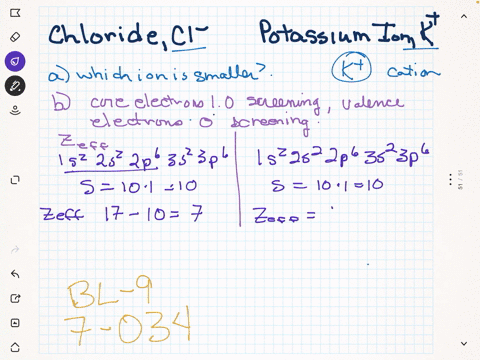 Chloride, Cl⁻ Potassium Ion, K⁺
a) which ion is smaller? K⁺ cation
b) core electrons 1.0 screening, valence
electrons 0 screening.
Zeff
1s² 2s² 2p⁶ 3s² 3p⁶
S = 10·1 = 10
Zeff 17 - 10 = 7
1s² 2s² 2p⁶ 3s² 3p⁶
S = 10·1 = 10
Zeff =
BL-9
7-034